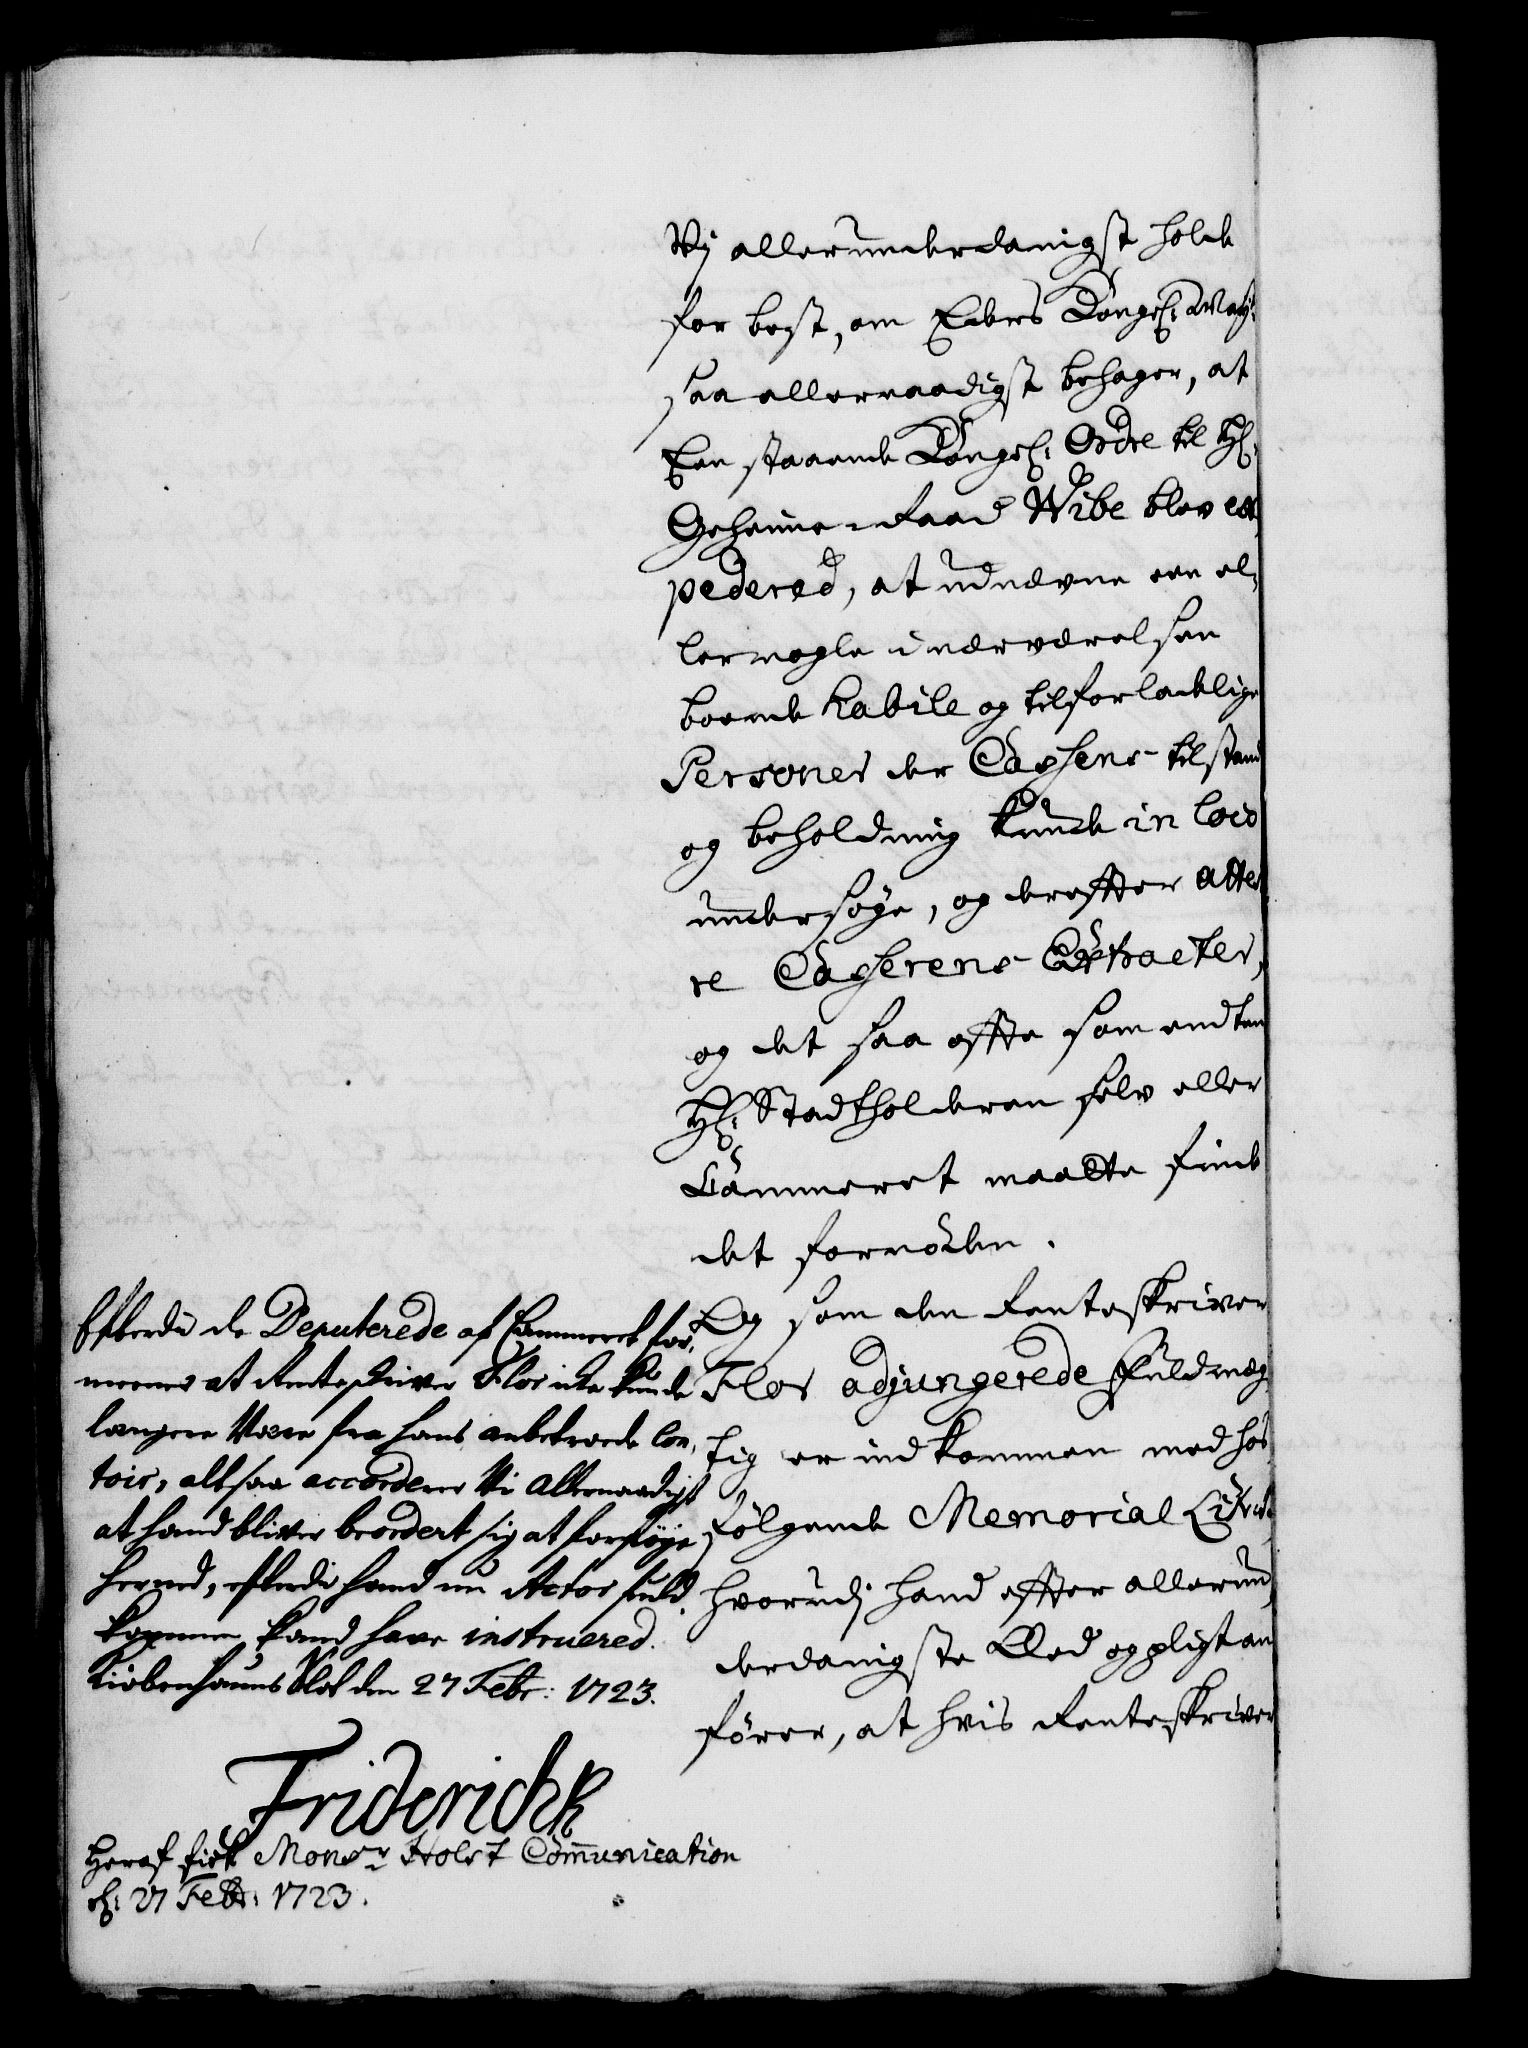 Vj allerunderdanigst holde
for best, om Eders Kongel: May:
saa allernaadigst behager, at
Een staaende Kongel: Ordre til Hr:
Geheime-Raad Wibe blev ex„
pedered, at udnævne een el„
ler nogle i nærværelsen
boende habile og tilforladelige
Personer der Cassens tilstand
og beholdning kunde in loco
undersøge, og dereffter atte„
re Casserens Extracter,
og det saa offte som endten
Hr: Stadtholderen selv eller
Cammeret maatte finde
det fornöden.
Og som den Renteskriver
Flor adjungerede Fuldmæg„
tig er indkommen med hos„
følgende Memorial
hvorudj hand effter allerun„
derdanigste Eed og pligt an„
fører, at hvis Renteskriver
Efterdi de Deputerede af Cammeret for„
meener at Renteskriver Flor icke kunde
længere Være fra hans anbetroede Con„
toir, altsaa accorderer Vi Allernaadigst
at hand bliver beordert sig at forføye
herned, efterdi hand nu Actor fuld„
kommen kand have instruered.
Kiøbenhauns Slot den 27 Febr: 1723.
Friderich R
Heraf fick Monsr Holst Communication
d: 27 Febr: 1723.